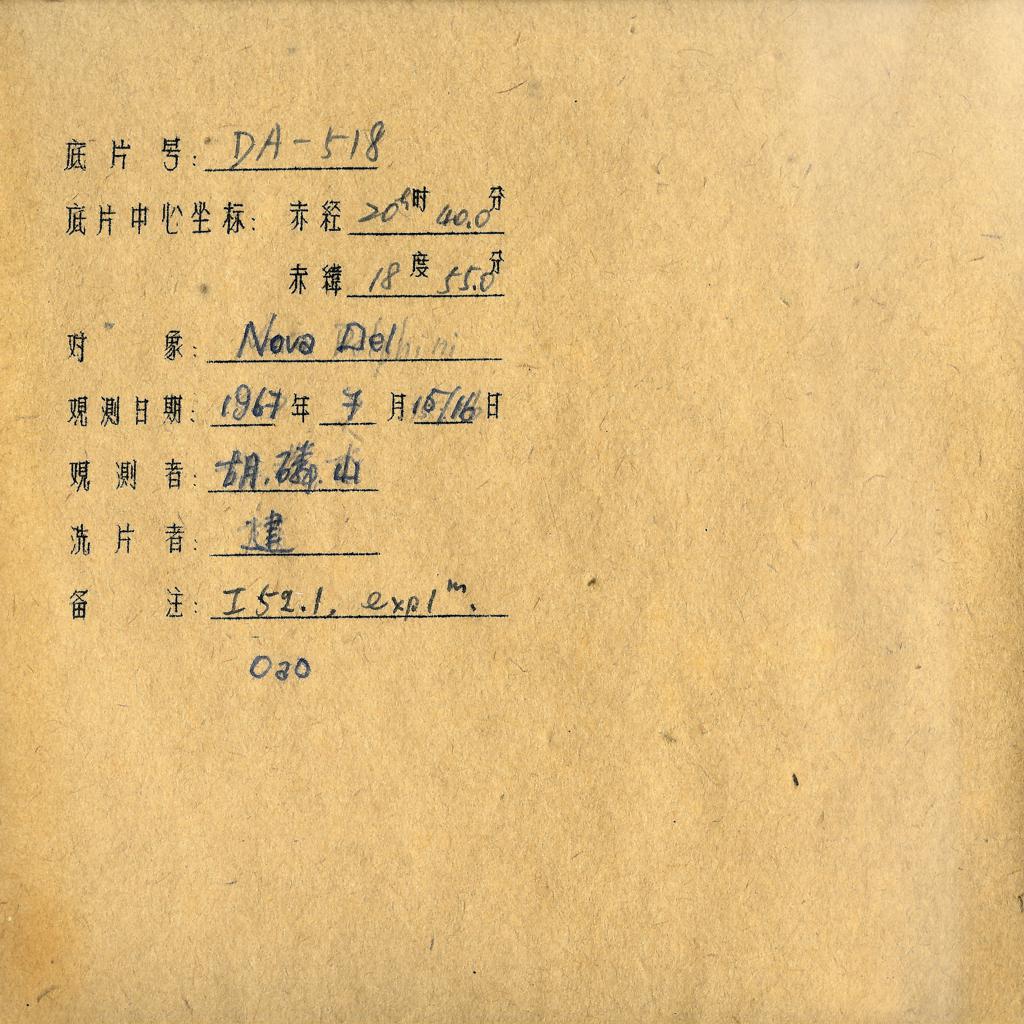 底片号: DA-518
底片中心坐标: 赤经 20h时 40.0分
赤纬 18度 55.0分
对象: Nova Del
观测日期: 1967年 7月15/16日
观测者: 胡.磷.山
洗片者: 建
备注: I52.1. exp1m.
OaO